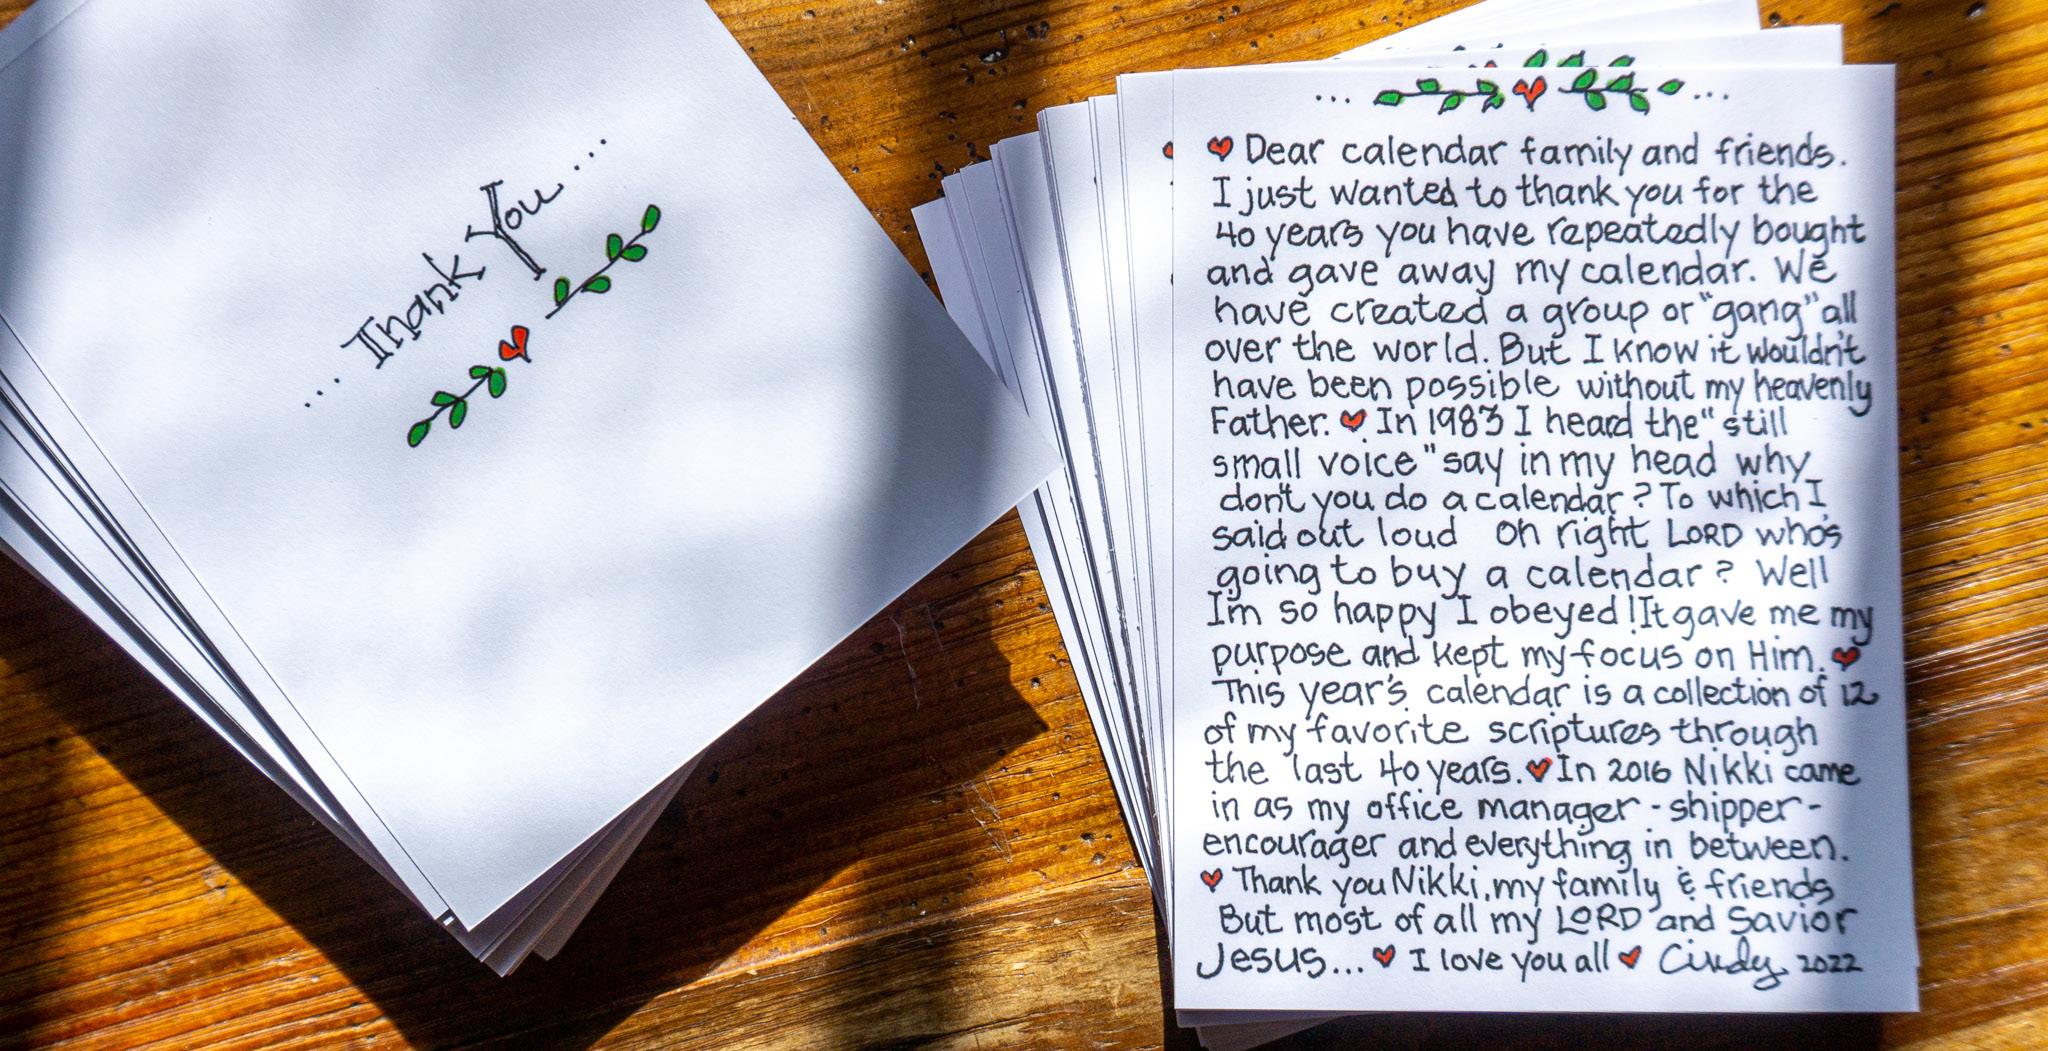 ... Thank You ...
...  ...
♥ Dear calendar family and friends.
I just wanted to thank you for the
40 years you have repeatedly bought
and gave away my calendar. We
have created a group or "gang" all
over the world. But I know it wouldn't
have been possible without my heavenly
Father. ♥ In 1983 I heard the "still
small voice" say in my head why
don't you do a calendar? To which I
said out loud Oh right LORD who's
going to buy a calendar? Well
I'm so happy I obeyed! It gave me my
purpose and kept my focus on Him. ♥
This year's calendar is a collection of 12
of my favorite scriptures through
the last 40 years. ♥ In 2016 Nikki came
in as my office manager - shipper -
encourager and everything in between.
♥ Thank you Nikki, my family & friends
But most of all my LORD and Savior
Jesus... ♥ I love you all ♥ Cindy 2022